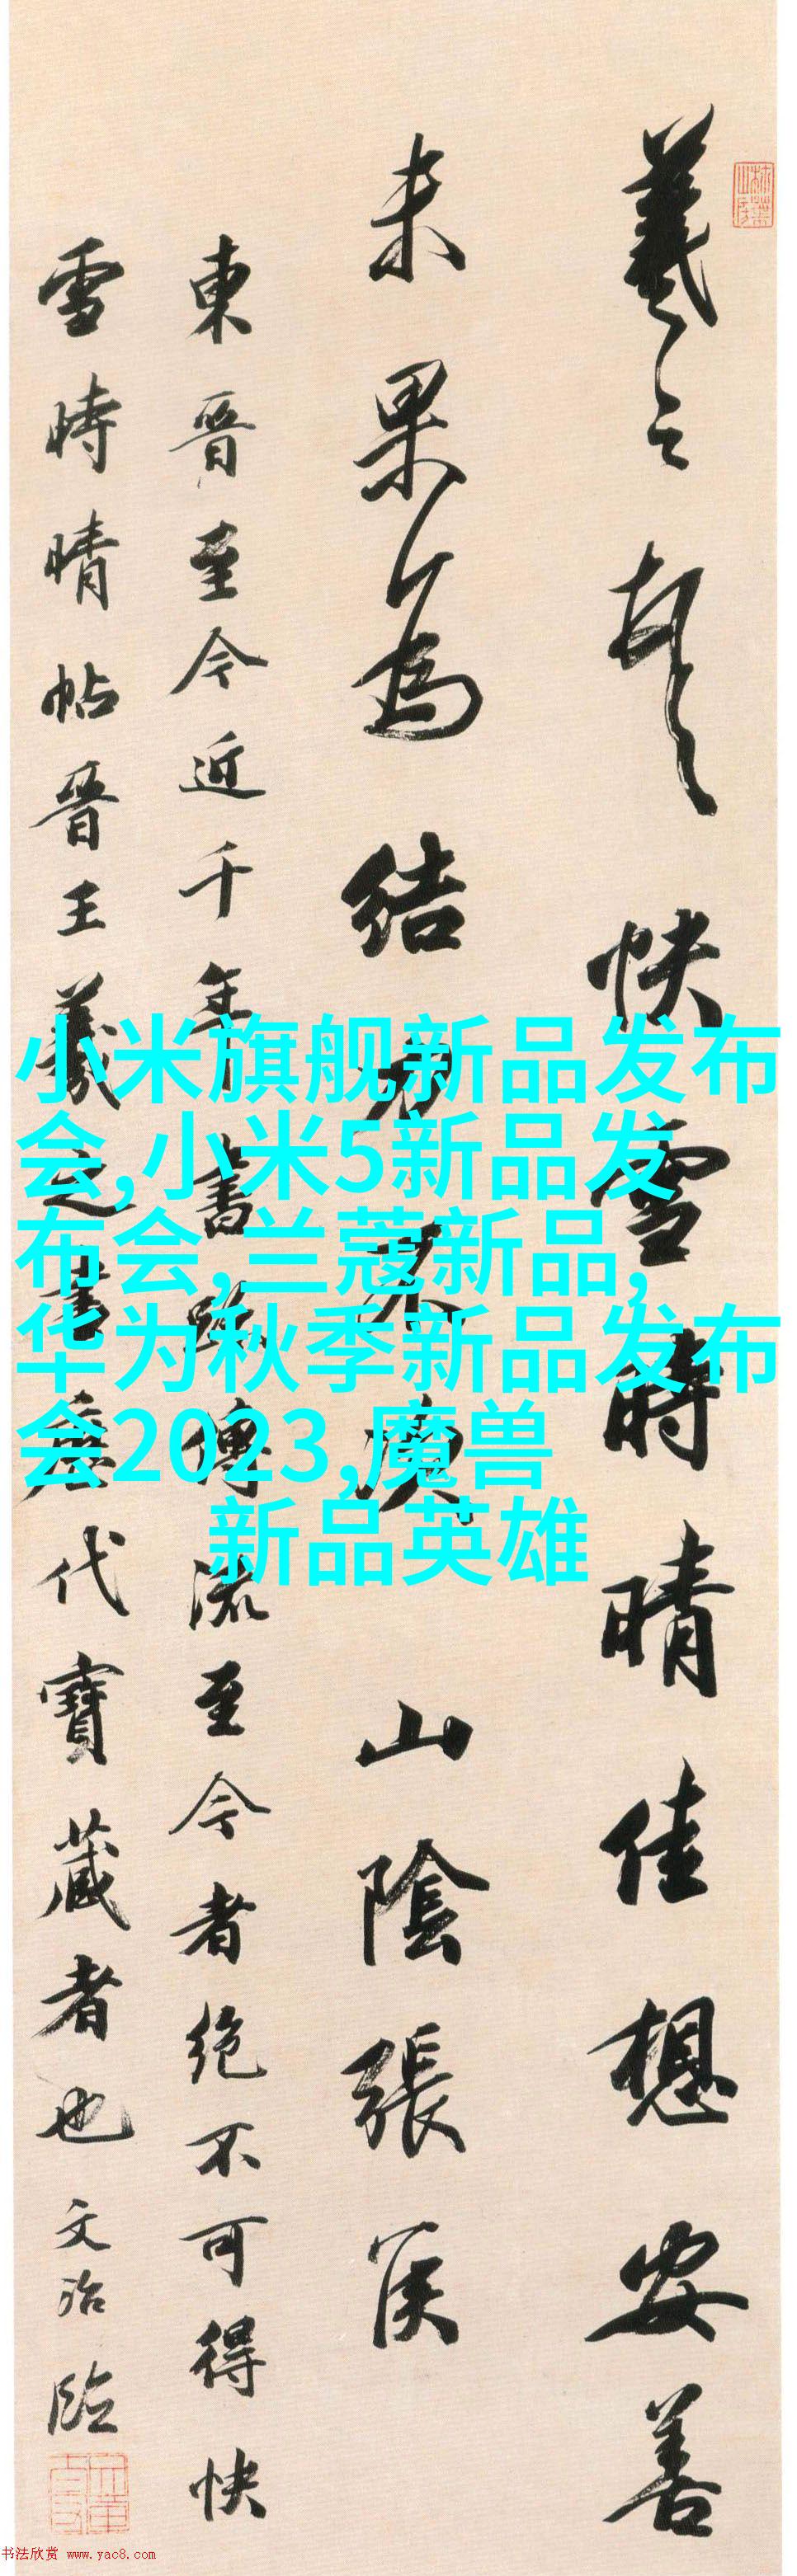 羲之頓首快雪時晴佳想安善
未果為結力不次山陰張侯
東晉至今近千年書跡傳流至今者絕不可得快
雪時晴帖晉王羲之書歷代寶藏者也文治臨
小米旗舰新品发布
会,小米5新品发
布会,兰蔻新品,
华为秋季新品发布
会2023,魔兽
新品英雄
书法欣赏 www.yac8.com